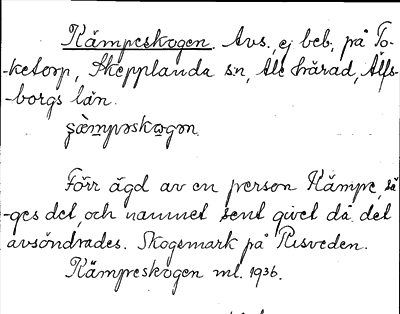 Kämpeskogen. Avs., ej beb., på To-
-ketorp, Skepplanda sn, Ale härad, Älfs-
-borgs län.
Förr ägd av en person Kämpe, sä-
-ges det, och namnet sent givet då det
avsöndrades. Skogsmark på Risveden.
Kämpeskogen ml. 1936.